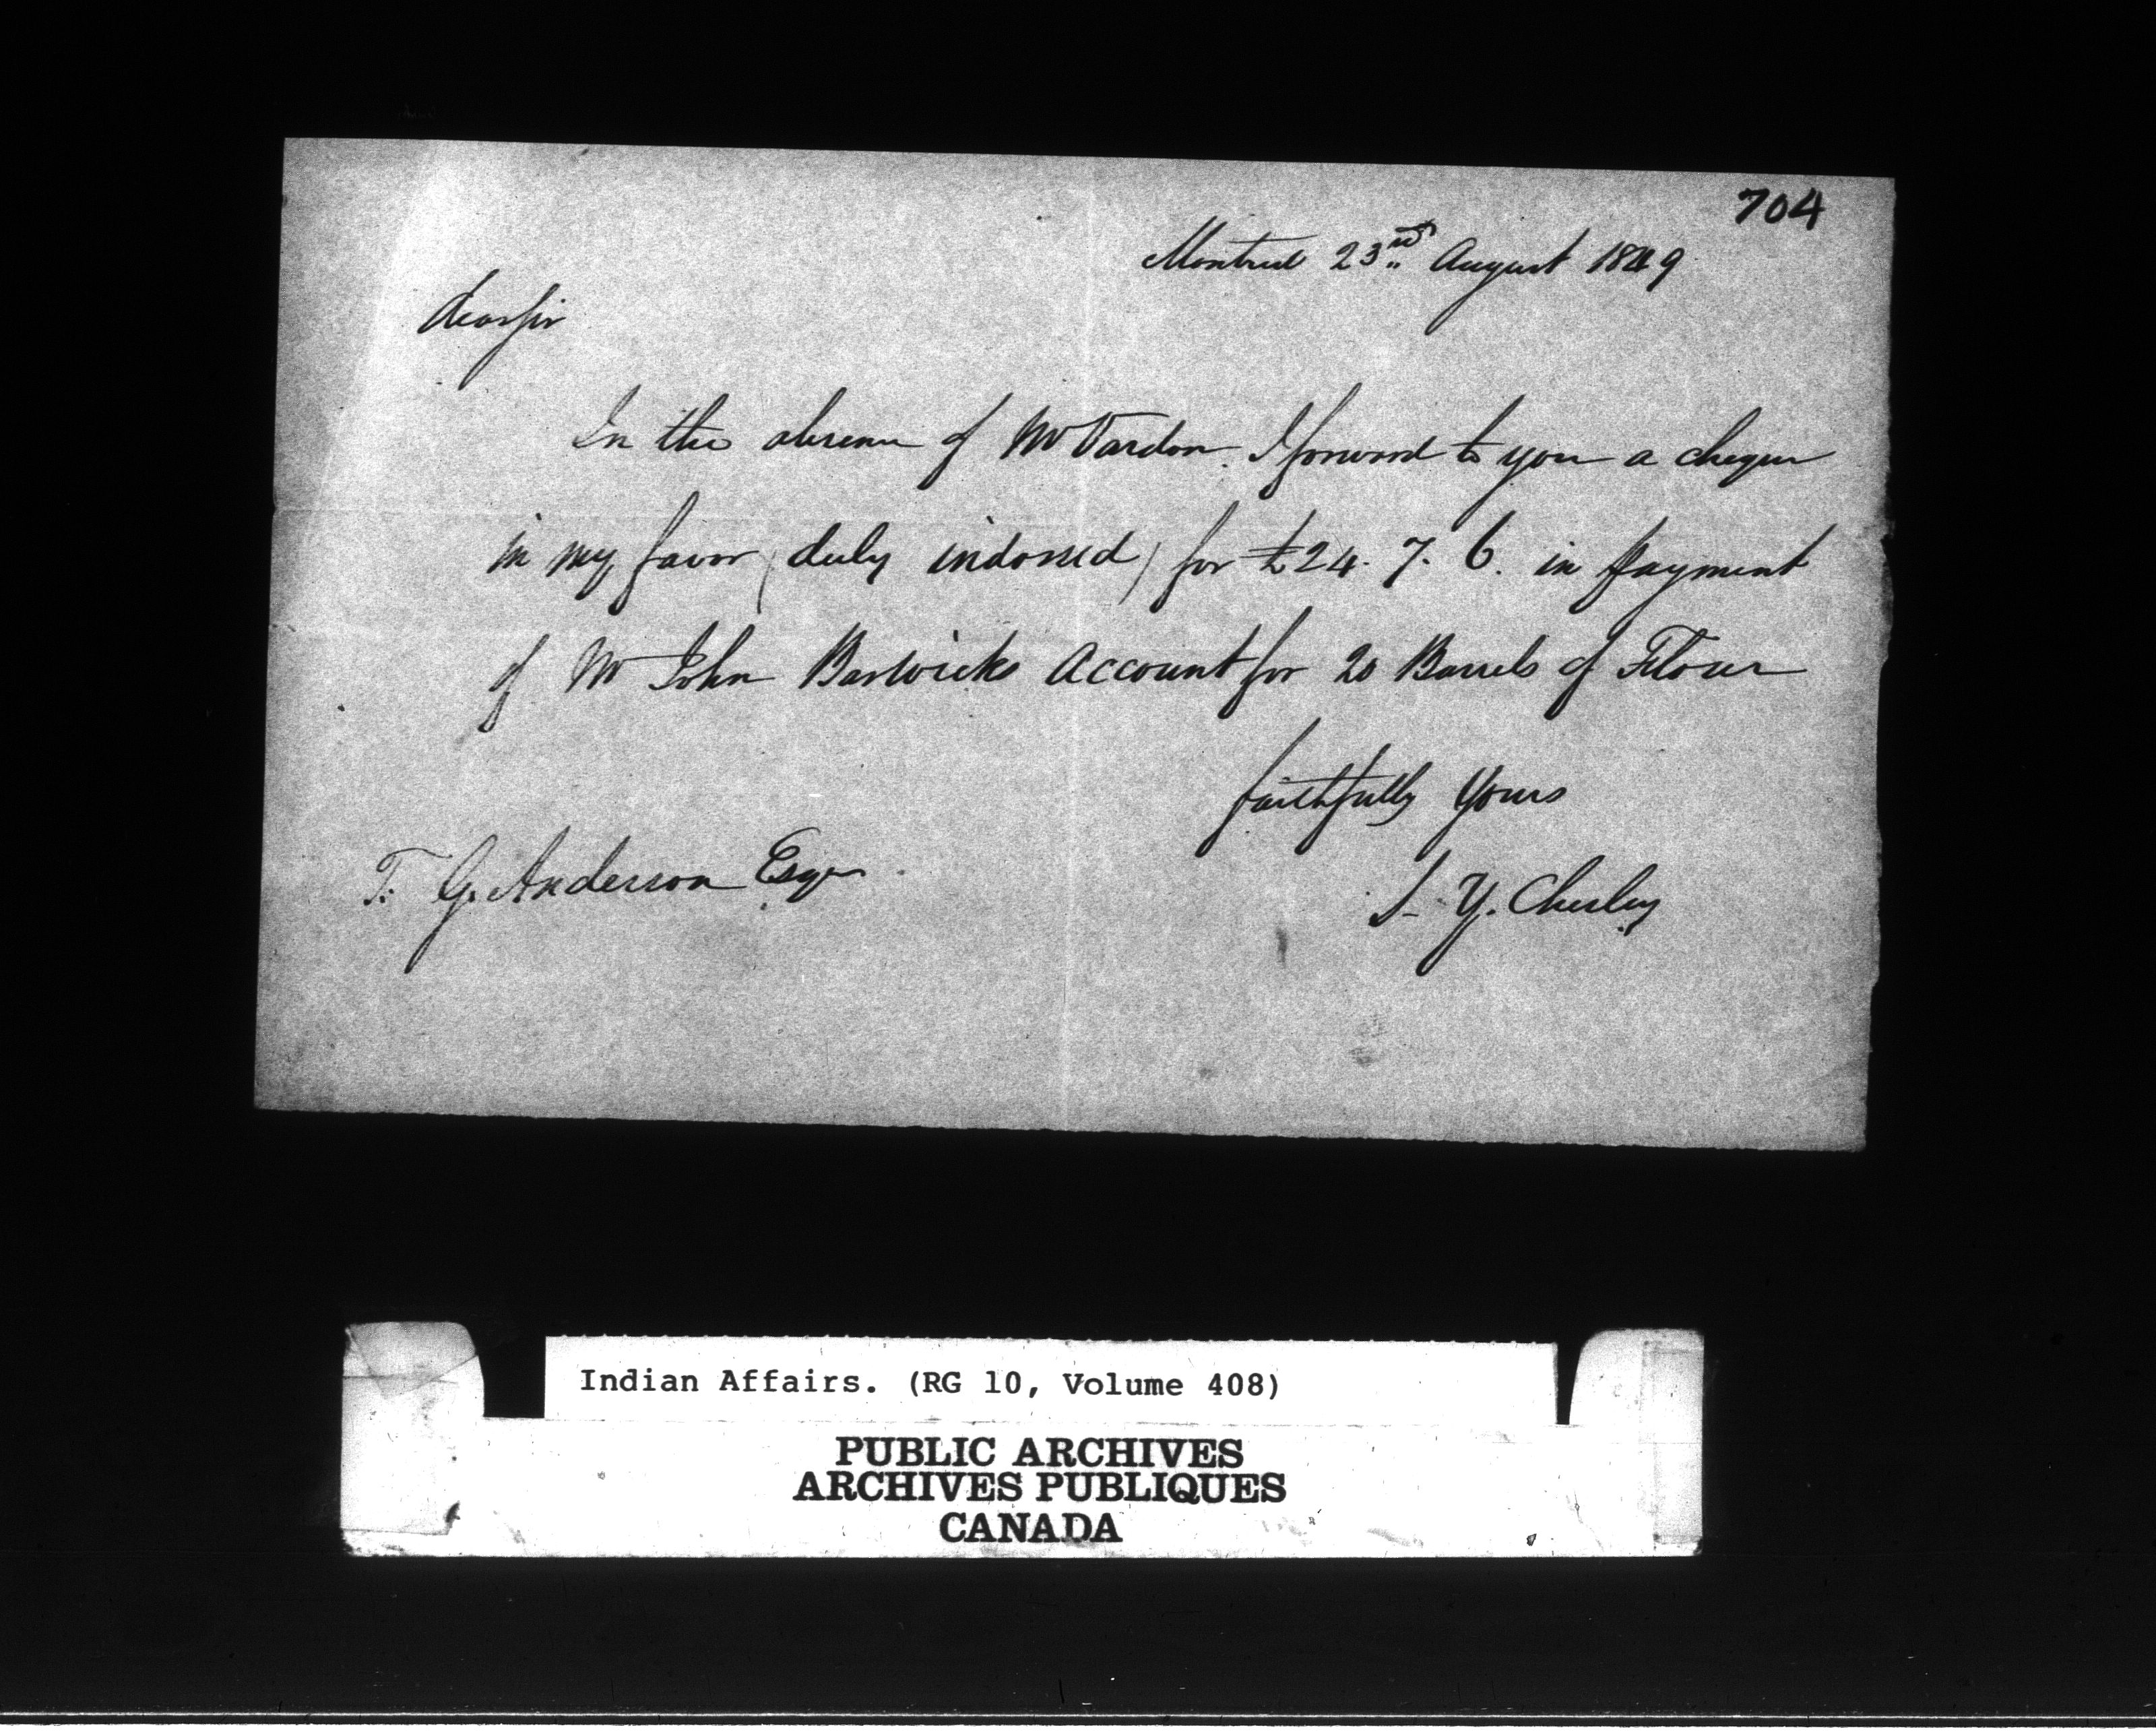 704
Montreal 23rd August 1849
Dear Sir
In the absence of Mr Vardon. I forward to you a cheque
in my favor (duly indorsed) for £24. 7. 6. in payment
of Mr John Barwicks Account for 20 Barrels of Flour
faithfully Yours
S. Y. Chesley
T. G. Anderson Esqre
Indian Affairs. (RG 10, Volume 408)
PUBLIC ARCHIVES
ARCHIVES PUBLIQUES
CANADA